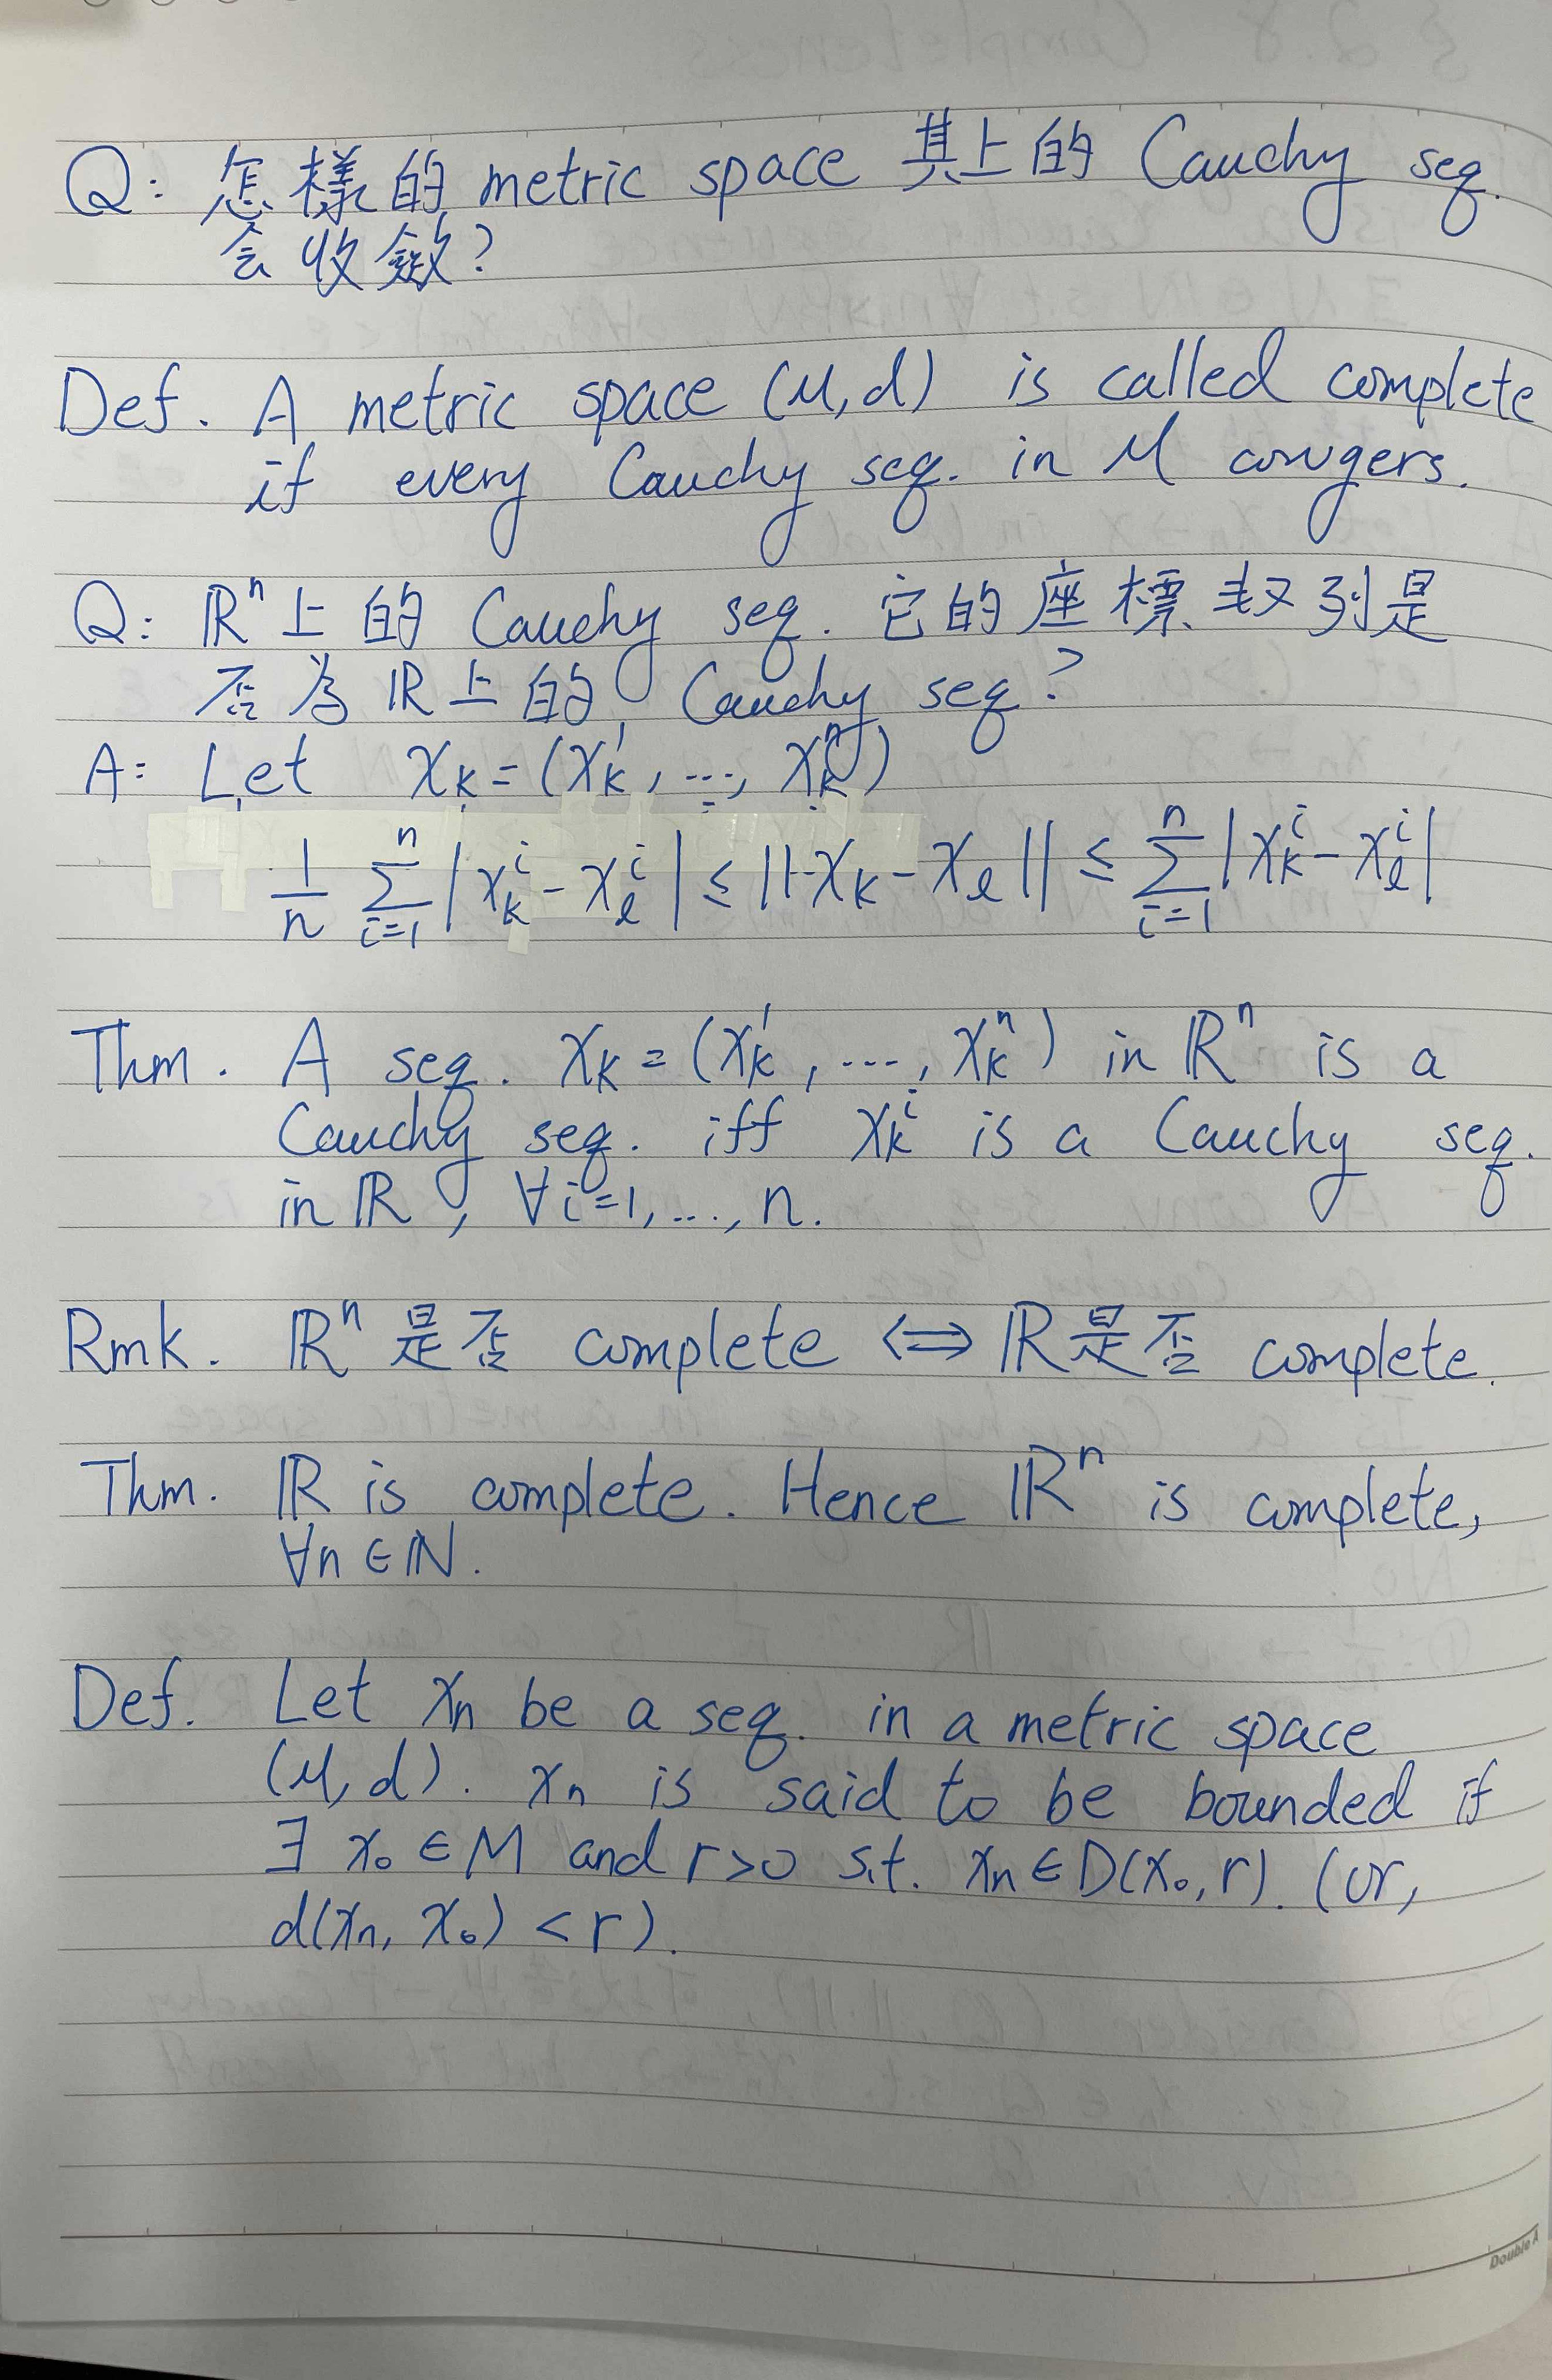 Q: 怎樣的 metric space 其上的 Cauchy seq.
会收斂?
Def. A metric space (M,d) is called complete
if every Cauchy seq. in M congers.
Q: ℝⁿ上的 Cauchy seq. 它的座標数列是
否為ℝ上的 Cauchy seq?
A: Let x_k = (x_k^1, ..., x_k^n)
1/n ∑_{i=1}^n |x_k^i - x_ℓ^i| ≤ ||x_k - x_ℓ|| ≤ ∑_{i=1}^n |x_k^i - x_ℓ^i|
Thm. A seq. x_k = (x_k^1, ..., x_k^n) in ℝⁿ is a
Cauchy seq. iff x_k^i is a Cauchy seq.
in ℝ, ∀i=1,...,n.
Rmk. ℝⁿ是否 complete ⟺ ℝ是否 complete.
Thm. ℝ is complete. Hence ℝⁿ is complete,
∀n∈ℕ.
Def. Let x_n be a seq. in a metric space
(M,d). x_n is said to be bounded if
∃ x_0 ∈ M and r>0 s.t. x_n ∈ D(x_0,r). (or,
d(x_n, x_0) < r).
Double A